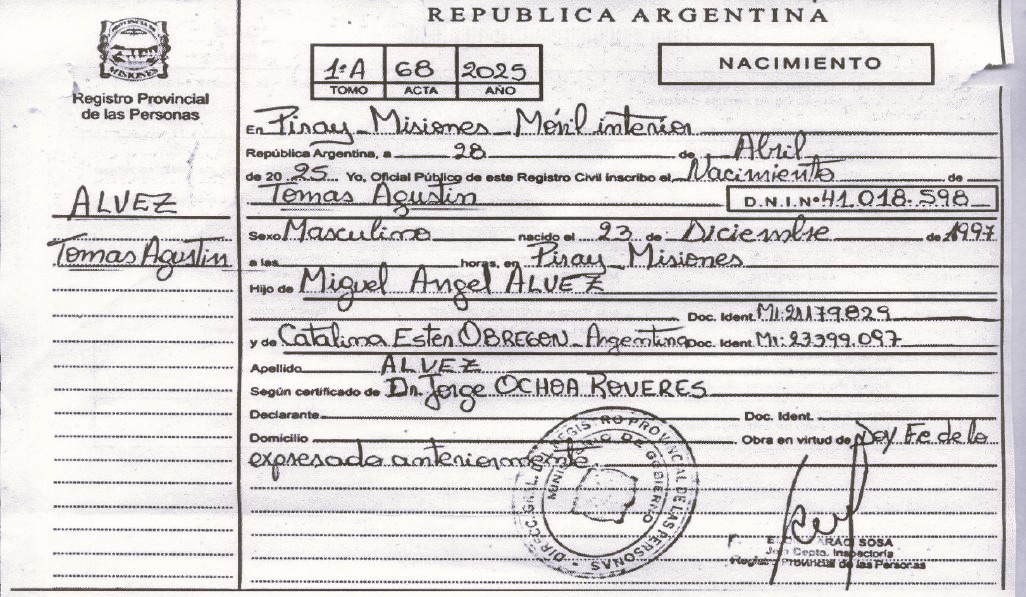 REPUBLICA ARGENTINA
MISIONES
Registro Provincial
de las Personas
ALVEZ
Tomas Agustin
1ªA 68 2025
TOMO ACTA AÑO
NACIMIENTO
En Piray Misiones Móvil interior
República Argentina, a 28 de Abril
de 2025 Yo, Oficial Público de este Registro Civil inscribo el Nacimiento de
Tomas Agustin D.N.I.Nº 41.018.598
Sexo Masculino nacido el 23 de Diciembre de 1997
a las horas, en Piray Misiones
Hijo de Miguel Angel ALVEZ
Doc. Ident. MI:21179829
y de Catalina Ester OBREGON Argentina Doc. Ident. MI:23399.097
Apellido ALVEZ
Según certificado de Dr. Jorge OCHOA ROVERES
Declarante Doc. Ident.
Domicilio Obra en virtud de Doy Fe de lo
expresado anteriormente
DIRECC. GRAL. DEL REGISTRO PROVINCIAL DE LAS PERSONAS
MINISTERIO DE GOBIERNO
SOSA
Jefe Depto. Inspectoría
Registro Provincial de las Personas